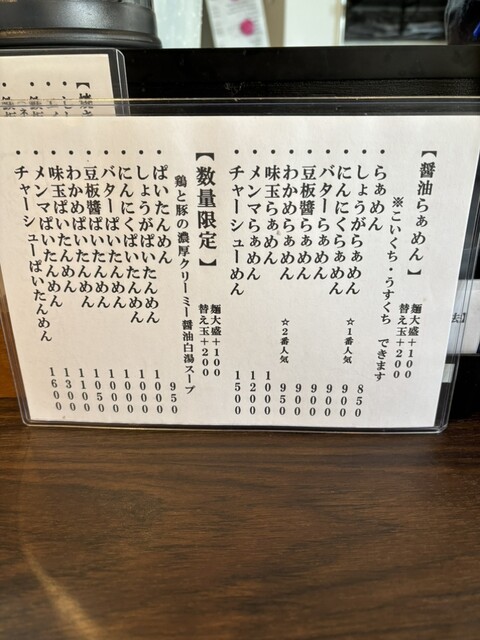 【醤油らぁめん】
麺大盛+100
替え玉+200
※こいくち・うすくち できます
・らぁめん 850
・しょうがらぁめん ☆1番人気 900
・にんにくらぁめん 900
・バターらぁめん 900
・豆板醬らぁめん 900
・わかめらぁめん ☆2番人気 950
・味玉らぁめん 1000
・メンマらぁめん 1200
・チャーシューめん 1500
【数量限定】
麺大盛+100
替え玉+200
鶏と豚の濃厚クリーミー醤油白湯スープ
・ぱいたんめん 950
・しょうがぱいたんめん 1000
・にんにくぱいたんめん 1000
・バターぱいたんめん 1000
・豆板醬ぱいたんめん 1000
・わかめぱいたんめん 1050
・味玉ぱいたんめん 1100
・メンマぱいたんめん 1300
・チャーシューぱいたんめん 1600